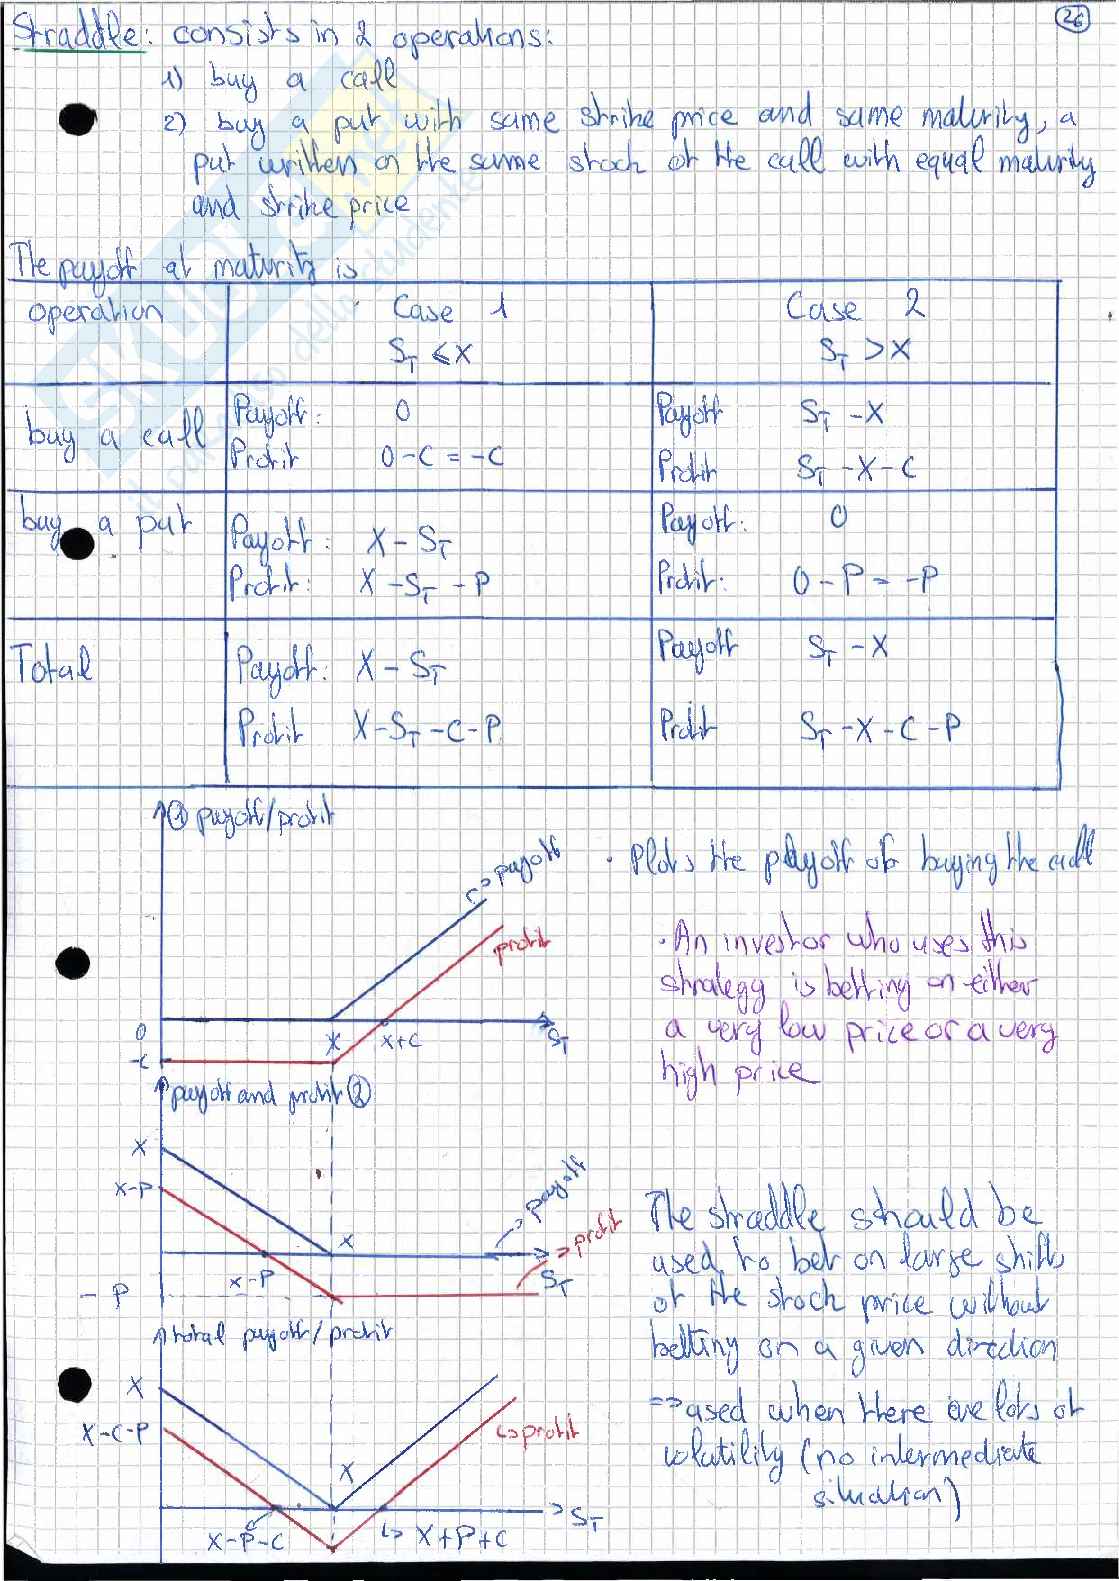 26
Straddle: consists in 2 operations:
1) buy a call
2) buy a put with same strike price and same maturity, a
put written on the same stock of the call with equal maturity
and strike price
The payoff at maturity is
operation Case 1 Case 2
S_T ≤ X S_T > X
buy a call Payoff: 0 Payoff S_T - X
Profit 0 - C = -C Profit S_T - X - C
buy a put Payoff: X - S_T Payoff: 0
Profit: X - S_T - P Profit: 0 - P = -P
Total Payoff: X - S_T Payoff S_T - X
Profit X - S_T - C - P Profit S_T - X - C - P
① payoff/profit
payoff
profit
0
X
X+C
S_T
-C
· Plots the payoff of buying the call
· An investor who uses this
strategy is betting on either
a very low price or a very
high price
payoff and profit ②
X
X-P
X
X-P
S_T
-P
payoff
profit
total payoff/profit
X
X-C-P
X
profit
S_T
X-P-C
X+P+C
The straddle should be
used to bet on large shifts
of the stock price without
betting on a given direction
=> used when there are lots of
volatility (no intermediate
situation)
SKUOLA.net
il paradiso dello studente